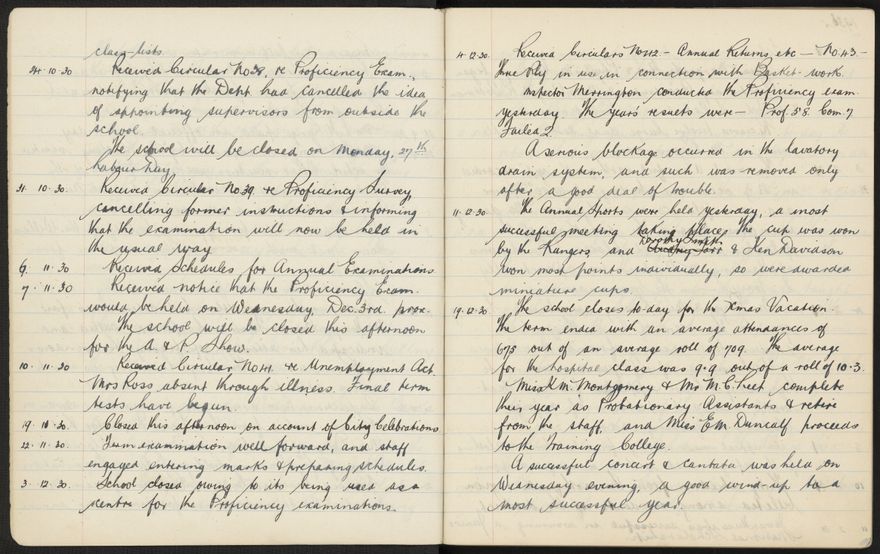 class-lists.
24.10.30 Received Circular No 38, re Proficiency Exam.,
notifying that the Dept. had cancelled the idea
of appointing supervisors from outside the
school.
The school will be closed on Monday, 27th
Labour Day.
31.10.30. Received Circular No 39 re Proficiency Survey,
cancelling former instructions & informing
that the examination will now be held in
the usual way.
6.11.30 Received Schedules for Annual Examinations.
7.11.30 Received notice that the Proficiency Exam.
would be held on Wednesday, Dec. 3rd. prox.
The school will be closed this afternoon
for the A. & P. Show.
10.11.30 Received Circular No 41. re Unemployment Act.
Mrs Ross absent through illness. Final term
tests have begun.
19.10.30 Closed this afternoon on account of City Celebrations
22.11.30. Term examination well forward, and staff
engaged entering marks & preparing schedules.
3.12.30. School closed owing to its being used as a
centre for the Proficiency examinations.
4.12.30. Received Circulars No 42. - Annual Returns, etc - No. 43 -
Three Ply in use in connection with Basket-work.
Inspector Merrington conducted the Proficiency exam.
yesterday. The year's results were - Prof. 58. Com. 7
Failed 2
A serious blockage occurred in the lavatory
drain system, and such was removed only
after a good deal of trouble.
11.12.30. The Annual Sports were held yesterday, a most
successful meeting taking place. The cup was won
Dorothy Smith
by the Rangers and & Ken Davidson
won most points individually, so were awarded
miniature cups.
19.12.30 The school closes to-day for the Xmas Vacation
The term ended with an average attendances of
675 out of an average roll of 709. The average
for the hospital class was 9.9 out of a roll of 10.3.
Miss K. M. Montgomery & Mr M. C. complete
their year as Probationary Assistants & retire
from the staff, and Miss E. M. Duncalf proceeds
to the Training College.
A successful concert & cantata was held on
Wednesday evening, a good wind-up to a
most successful year.